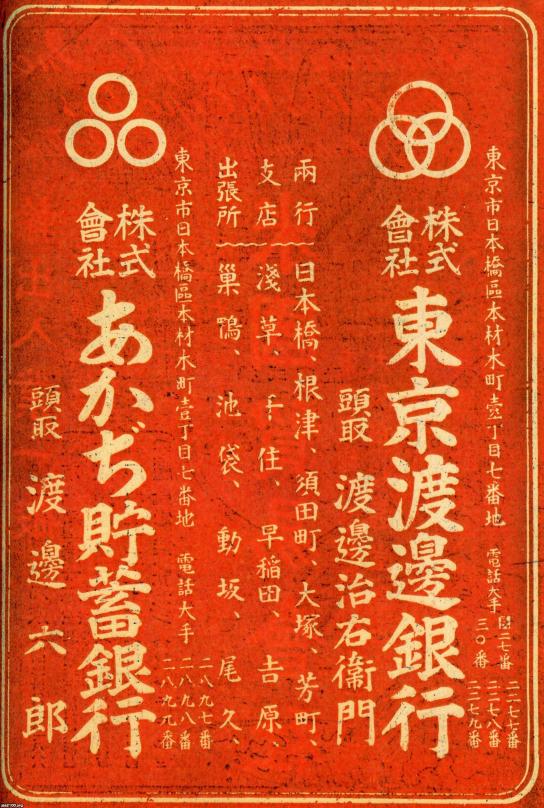 東京市日本橋區本材木町壹丁目七番地 電話大手
三〇番
二一七七番
二二七八番
二二七九番
株式會社
東京渡邊銀行
頭取 渡邊治右衞門
兩行 日本橋、根津、須田町、大塚、芳町、
支店 淺草、千住、早稲田、吉原、
出張所 巢鴨、池袋、動坂、尾久、
東京市日本橋區本材木町壹丁目七番地 電話大手
二八九七番
二八九八番
二八九九番
株式會社
あかぢ貯蓄銀行
頭取 渡邊六郎